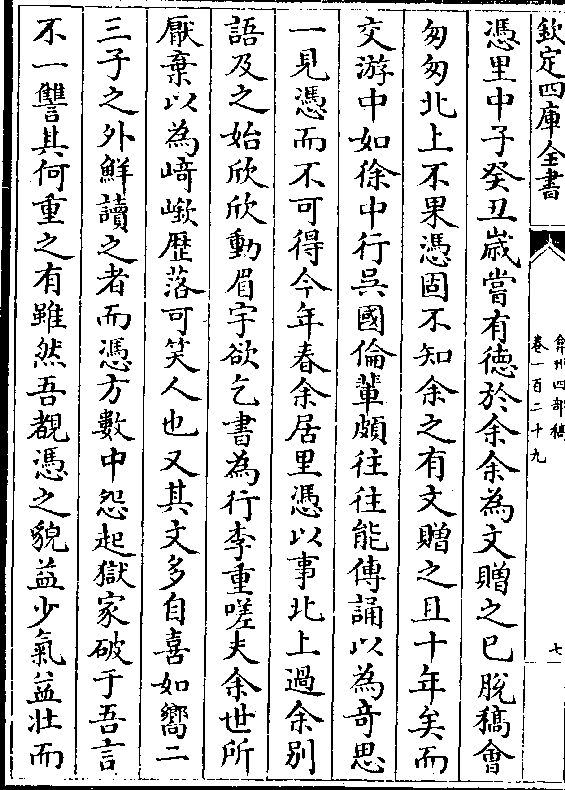 欽定四庫全書
弇州四部稿
卷一百二十九
七
憑里中子癸丑歲嘗有德於余余為文贈之已脫稿會
匆匆北上不果憑固不知余之有文贈之且十年矣而
交游中如徐中行吳國倫輩頗往往能傳誦以為奇思
一見憑而不可得今年春余居里憑以事北上過余别
語及之始欣欣動眉宇欲乞書為行李重嗟夫余世所
厭棄以為崎嶔歷落可笑人也又其文多自喜如嚮二
三子之外鮮讀之者而憑方數中怨起獄家破于吾言
不一讐其何重之有雖然吾覩憑之貌益少氣益壯而